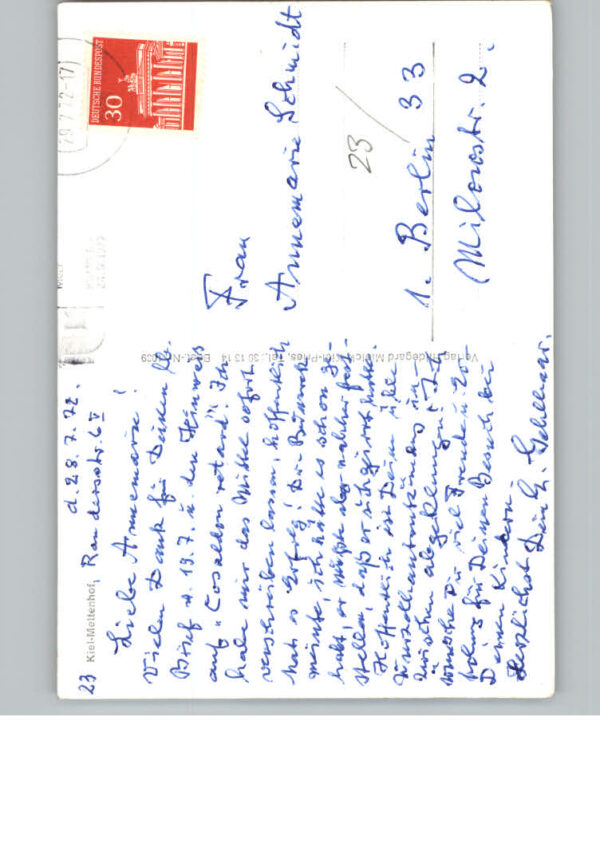 23 Kiel-Mettenhof, Randersstr. 6 V
d. 28.7.72.
Liebe Annemarie!
Vielen Dank für Deinen lb.
Brief v. 19.7. u. den Hinweis
auf " retard". Ich
habe mir das Mittel sofort
verschreiben lassen, hoffentlich
hat es Erfolg! Dr.
meinte, ich hätte es schon ge-
habt, er mußte aber nachher fest-
stellen, daß er sich geirrt hatte.
Hoffentlich ist Deine üble
Wurzelhautentzündung in-
zwischen abgeklungen! Ich
wünsche Dir viel Freude u. Er-
holung für Deinen Besuch bei
Deinen Kindern.
Herzlichst Dein
Verlag Hildegard Kiel-Pries, Tel.: 39 13 14 Best.-Nr.
29.7.72-17
DEUTSCHE BUNDESPOST
30
Frau
Annemarie Schmidt
23/
1. Berlin 33
Milowstr. 2.